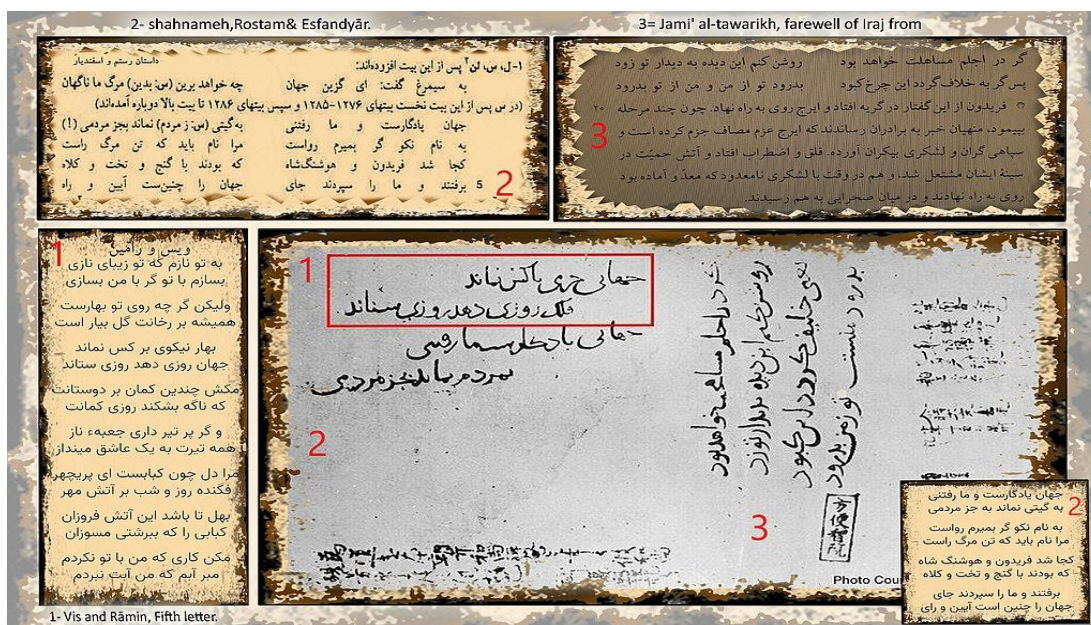 2- shahnameh,Rostam& Esfandyār.
3= Jami' al-tawarikh, farewell of Iraj from
داستان رستم و اسفندیار
۱-ل، س، لن۲ پس از این بیت افزوده‌اند:
به سیمرغ گفت: ای گزین جهان چه خواهد برین (س: بدین) مرگ ما ناگهان
(در س پس از این بیت نخست بیتهای ۱۲۷۶-۱۲۸۵ و سپس بیتهای ۱۲۸۶ تا بیت بالا دوباره آمده‌اند)
جهان یادگارست و ما رفتنی به گیتی (س: ز مردم) نماند بجز مردمی (!)
به نام نکو گر بمیرم رواست مرا نام باید که تن مرگ راست
کجا شد فریدون و هوشنگ‌شاه که بودند با گنج و تخت و کلاه
5 برفتند و ما را سپردند جای جهان را چنین‌ست آیین و راه
2
گر در اجلم مساهلت خواهد بود روشن کنم این دیده به دیدار تو زود
پس گر به خلاف گردد این چرخ کبود بدرود تو از من و من از تو بدرود
فریدون از این گفتار در گریه افتاد و ایرج روی به راه نهاد. چون چند مرحله ۲۰
بپیمود، منهیان خبر به برادران رساندند که ایرج عزم مصاف جزم کرده است و
سپاهی گران و لشکری بیکران آورده. قلق و اضطراب افتاد و آتش حمیّت در
سینهٔ ایشان مشتعل شد، و هم در وقت با لشکری نامعدود که معدّ و آماده بود
روی به راه نهادند و در میان صحرایی به هم رسیدند.
3
1
ویس و رامین
به تو نازم که تو زیبای نازی
بسازم با تو گر با من بسازی
ولیکن گر چه روی تو بهارست
همیشه بر رخانت گل ببار است
بهار نیکوی بر کس نماند
جهان روزی دهد روزی ستاند
مکش چندین کمان بر دوستانت
که ناگه بشکند روزی کمانت
و گر پر تیر داری جعبهء ناز
همه تیرت به یک عاشق مینداز
مرا دل چون کبابست ای پریچهر
فگنده روز و شب بر آتش مهر
بهل تا باشد این آتش فروزان
کبابی را که ببرشتی مسوزان
مکن کاری که من با تو نکردم
مبر آبم که من آبت نبردم
1- Vis and Rāmin, Fifth letter.
1
جهانی خرمی با کس نماند
فلک روزی دهد روزی ستاند
جهانی یادگارست ما رفتنی
بمردم نماند بجز مردمی
2
گر در اجلم مساهلت خواهد بود
روشن کنم این دیده بدیدار تو زود
3
Photo Cou
جهان یادگارست و ما رفتنی
به گیتی نماند به جز مردمی
به نام نکو گر بمیرم رواست
مرا نام باید که تن مرگ راست
کجا شد فریدون و هوشنگ شاه
که بودند با گنج و تخت و کلاه
برفتند و ما را سپردند جای
جهان را چنین است آیین و رای
2